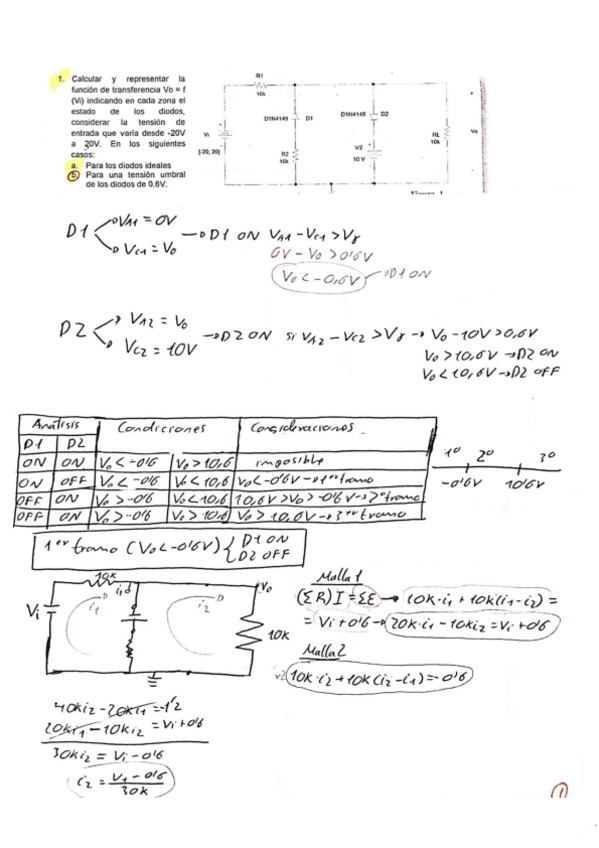 1. Calcular y representar la
función de transferencia Vo = f
(Vi) indicando en cada zona el
estado de los diodos,
considerar la tensión de
entrada que varía desde -20V
a 20V. En los siguientes
casos:
a. Para los diodos ideales
b. Para una tensión umbral
de los diodos de 0.6V.
R1
10k
D1N4148 D1
D1N4148 D2
Vi
[-20, 20]
R2
10k
V2
10 V
RL
10k
Vo
Figura 1
D1
VA1 = 0V
VC1 = Vo
→ D1 ON VA1 - VC1 > Vγ
0V - Vo > 0'6V
Vo < -0,6V → D1 ON
D2
VA2 = Vo
VC2 = 10V
→ D2 ON si VA2 - VC2 > Vγ → Vo - 10V > 0,6V
Vo > 10,6V → D2 ON
Vo < 10,6V → D2 OFF
Análisis Condiciones Consideraciones
D1 D2
ON ON Vo < -0'6 Vo > 10,6 imposible
ON OFF Vo < -0'6 Vo < 10,6 Vo < -0'6V → 1er tramo
OFF ON Vo > -0'6 Vo < 10,6 10,6V > Vo > -0'6V → 2º tramo
OFF ON Vo > -0'6 Vo > 10,6 Vo > 10,6V → 3er tramo
1º 2º 3º
-0'6V 10'6V
1er tramo (Vo < -0'6V) { D1 ON
D2 OFF
10k
Vi
i1
i2
Vo
10k
Malla 1
(ΣR)I = ΣE → 10k·i1 + 10k(i1 - i2) =
= Vi + 0'6 → 20k·i1 - 10ki2 = Vi + 0'6
Malla 2
x2 10k·i2 + 10k(i2 - i1) = -0'6
40ki2 - 20ki1 = -1'2
20ki1 - 10ki2 = Vi + 0'6
30ki2 = Vi - 0'6
i2 = V1 - 0'6 / 30k
1